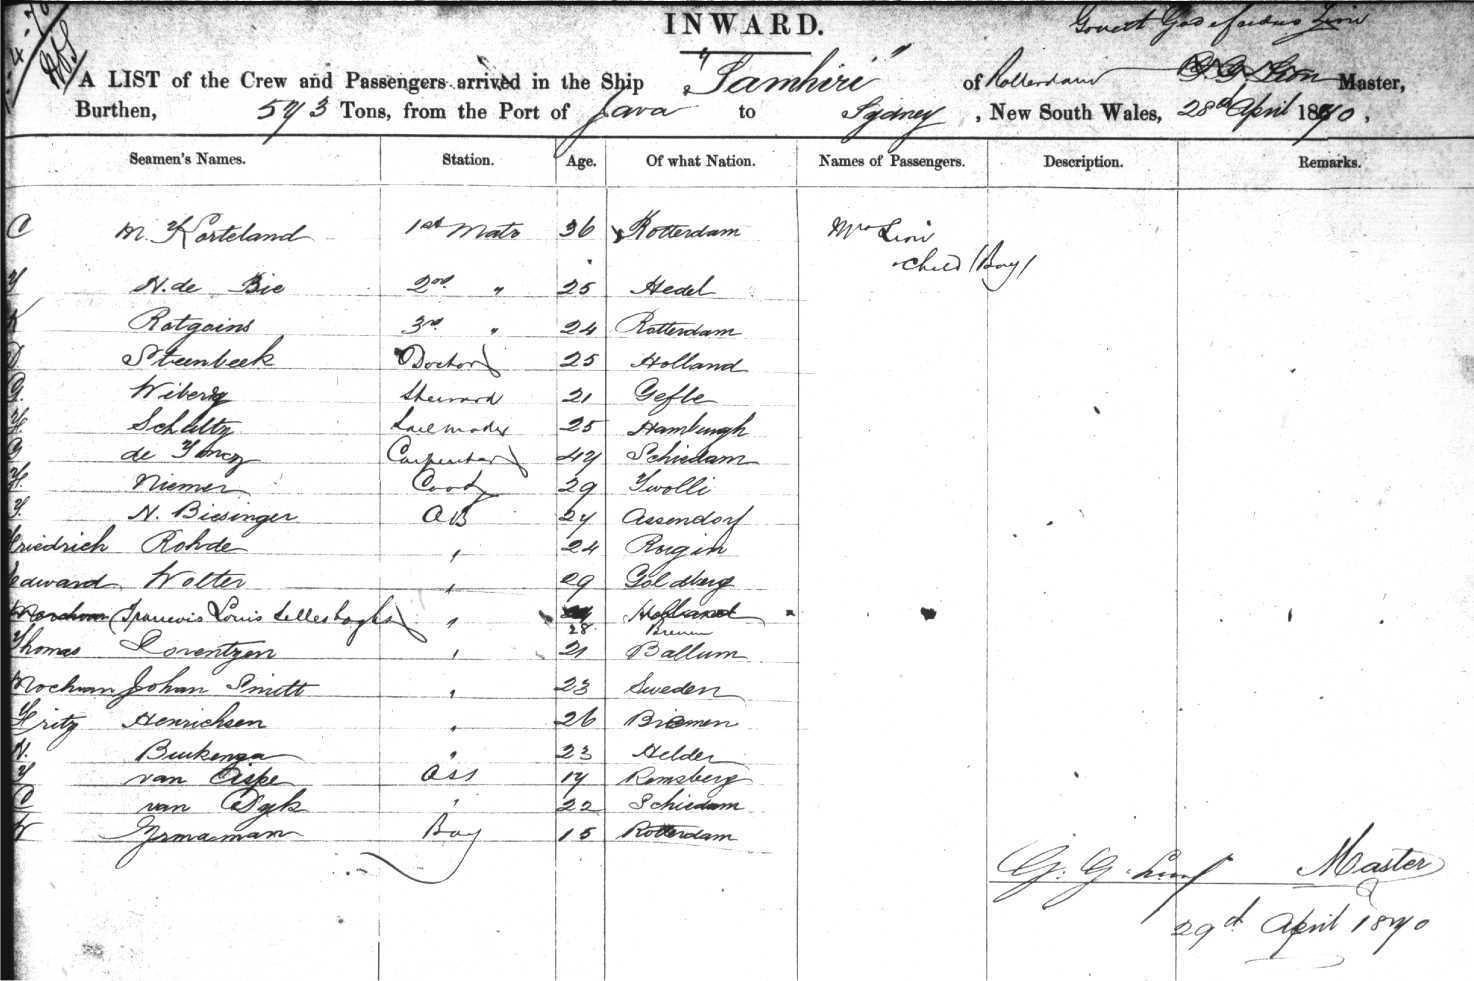 INWARD.
A LIST of the Crew and Passengers arrived in the Ship "Tamhiri" of Rotterdam Master,
Burthen, 573 Tons, from the Port of Java to Sydney, New South Wales, 28th April 1870,
Seamen's Names. Station. Age. Of what Nation. Names of Passengers. Description. Remarks.
C M. Korteland 1st Mate 36 Rotterdam Mrs Lion
child (Boy)
N. de Bie 2nd " 25 Hedel
K Rotgains 3rd " 24 Rotterdam
D Steenbeek Doctor 25 Holland
G. Wiberg Steward 21 Gefle
H Schultz Sailmaker 25 Hamburgh
G de Carpenter 47 Schiedam
H. Niemer Cook 29 Zwolli
N. Biesinger AB 27 Assendorf
Friedrich Rohde " 24
Edward Wolter " 29 Goldberg
Francois Louis " Holland
28 Bremen
Thomas Lorentzen " 21 Ballum
Johan Smitt " 23 Sweden
Fritz Henrichsen " 26 Bremen
N. Beukenga " 23 Helder
van OSS 17 Ramsberg
C van Dyk " 22 Schiedam
W Boy 15 Rotterdam
G. G. Lion Master
29th April 1870